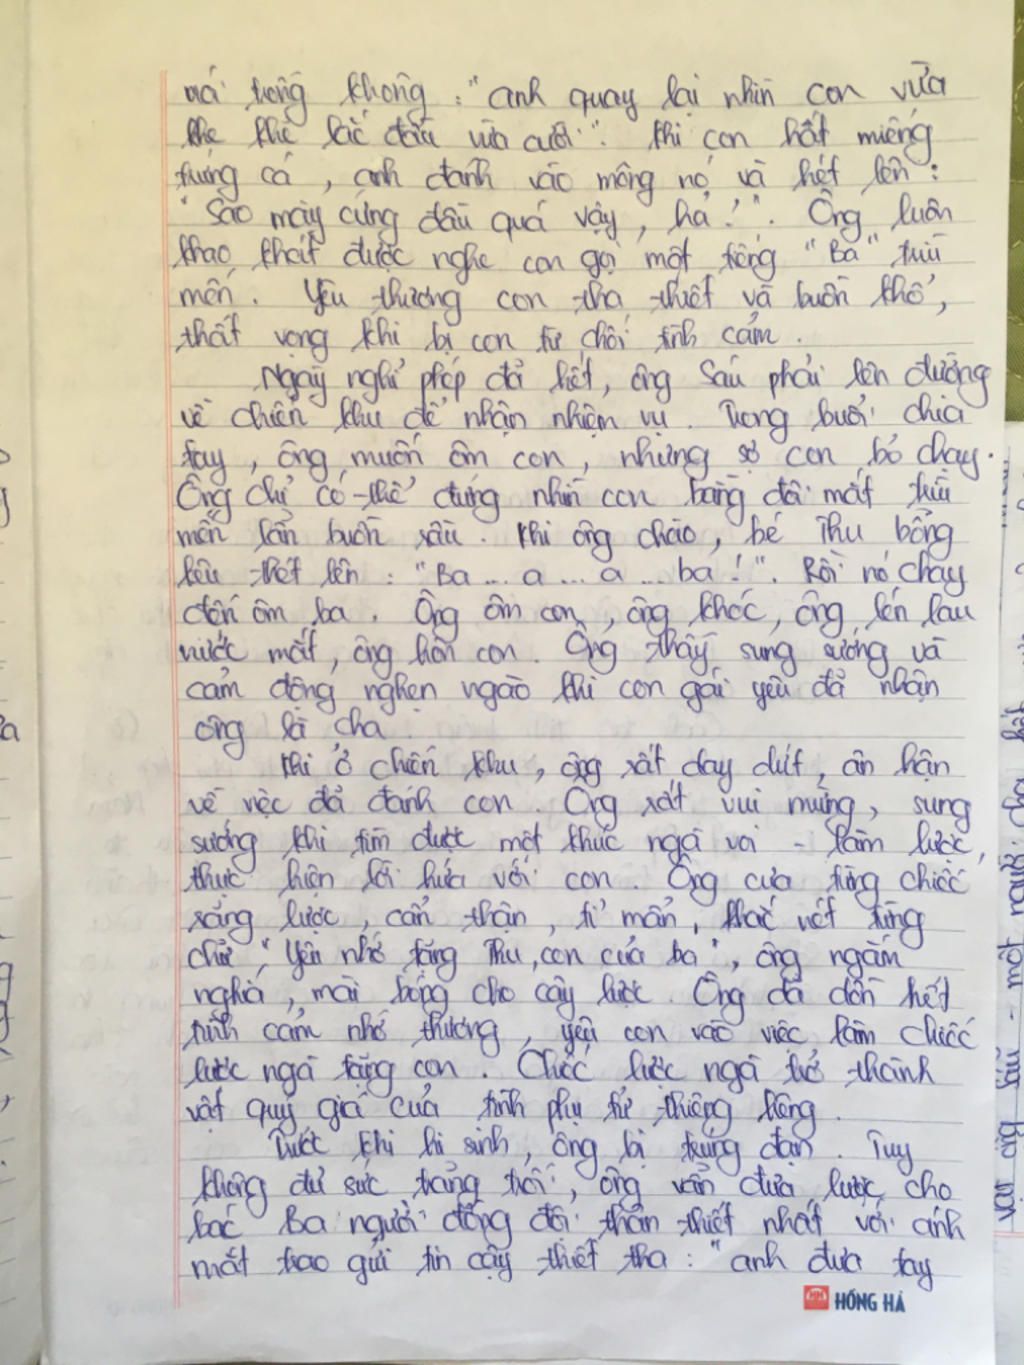 trống không: "anh quay lại nhìn con vừa
khe khẽ lắc đầu vừa cười". Khi con hất miếng
trứng cá, anh đánh vào mông nó và hét lên:
"Sao mày cứng đầu quá vậy, hả!". Ông luôn
khao khát được nghe con gọi một tiếng "Ba" trìu
mến. Yêu thương con tha thiết và buồn khổ,
thất vọng khi bị con từ chối tình cảm.
Ngày nghỉ phép đã hết, ông Sáu phải lên đường
về chiến khu để nhận nhiệm vụ. Trong buổi chia
tay, ông muốn ôm con, nhưng sợ con bỏ chạy.
Ông chỉ có thể đứng nhìn con bằng đôi mắt trìu
mến lẫn buồn sầu. Khi ông chào, bé Thu bỗng
kêu thét lên: "Ba... a... a... ba!". Rồi nó chạy
đến ôm ba. Ông ôm con, ông khóc, ông lén lau
nước mắt, ông hôn con. Ông thấy sung sướng và
cảm động nghẹn ngào khi con gái yêu đã nhận
ông là cha
Khi ở chiến khu, ông rất day dứt, ân hận
về việc đã đánh con. Ông rất vui mừng, sung
sướng khi tìm được một khúc ngà voi - làm lược,
thực hiện lời hứa với con. Ông cưa từng chiếc
răng lược, cẩn thận, tỉ mẩn, khắc nét từng
chữ "Yêu nhớ tặng Thu, con của ba", ông ngắm
nghía, mài bóng cho cây lược. Ông đã dồn hết
tình cảm nhớ thương, yêu con vào việc làm chiếc
lược ngà tặng con. Chiếc lược ngà trở thành
vật quý giá của tình phụ tử thiêng liêng.
Trước khi hi sinh, ông bị trúng đạn. Tuy
không đủ sức trăng trối, ông vẫn đưa lược cho
bác Ba người đồng đội thân thiết nhất với ánh
mắt trao gửi tin cậy thiết tha: "anh đưa tay
HỒNG HÀ